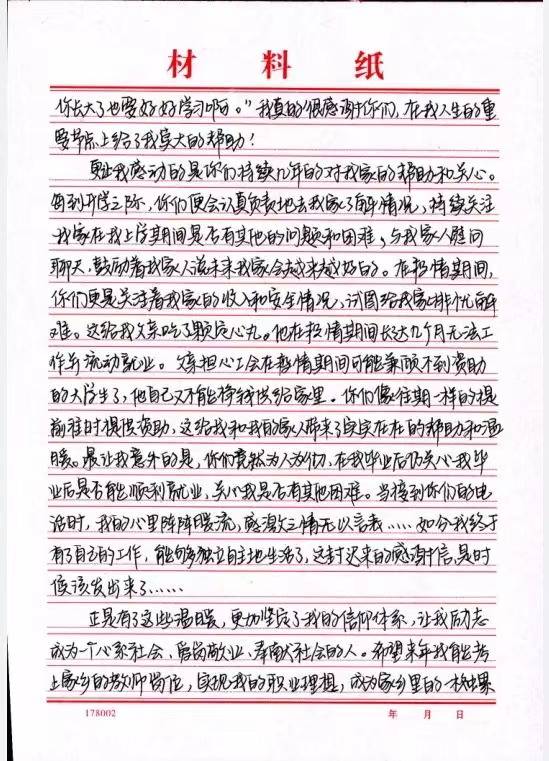 材料纸
你长大了也要好好学习啊。”我真的很感谢你们，在我人生的重
要节点上给了我莫大的帮助！
更让我感动的是你们持续几年的对我家的帮助和关心。
每到开学之际，你们便会认真负责地去我家了解情况，持续关注
我家在我上学期间是否有其他的问题和困难，与我家人慰问
聊天，鼓励着我家人说未来我家会越来越好的。在疫情期间，
你们更是关注着我家的收入和安全情况，试图给我家排忧解
难。这给我父亲吃了颗定心丸。他在疫情期间长达几个月无法工
作并流动就业。父亲担心工会在疫情期间可能兼顾不到资助
的大学生了，他自己又不能挣钱供给家里。你们像往期一样的提
前准时提供资助，这给我和我的家人带来了实实在在的帮助和温
暖。最让我意外的是，你们竟然为人为彻，在我毕业后仍关心我毕
业后是否能顺利就业，关心我是否有其他困难。当接到你们的电
话时，我的心里阵阵暖流，感激之情无以言表……如今我终于
有了自己的工作，能够独立自主地生活了，这封迟来的感谢信，是时
候该发出来了……
正是有了这些温暖，更加坚定了我的信仰体系，让我励志
成为一个心系社会、爱岗敬业、奉献社会的人。希望来年我能考
上家乡的教师岗位，实现我的职业理想，成为家乡里的一枚
178002 年 月 日